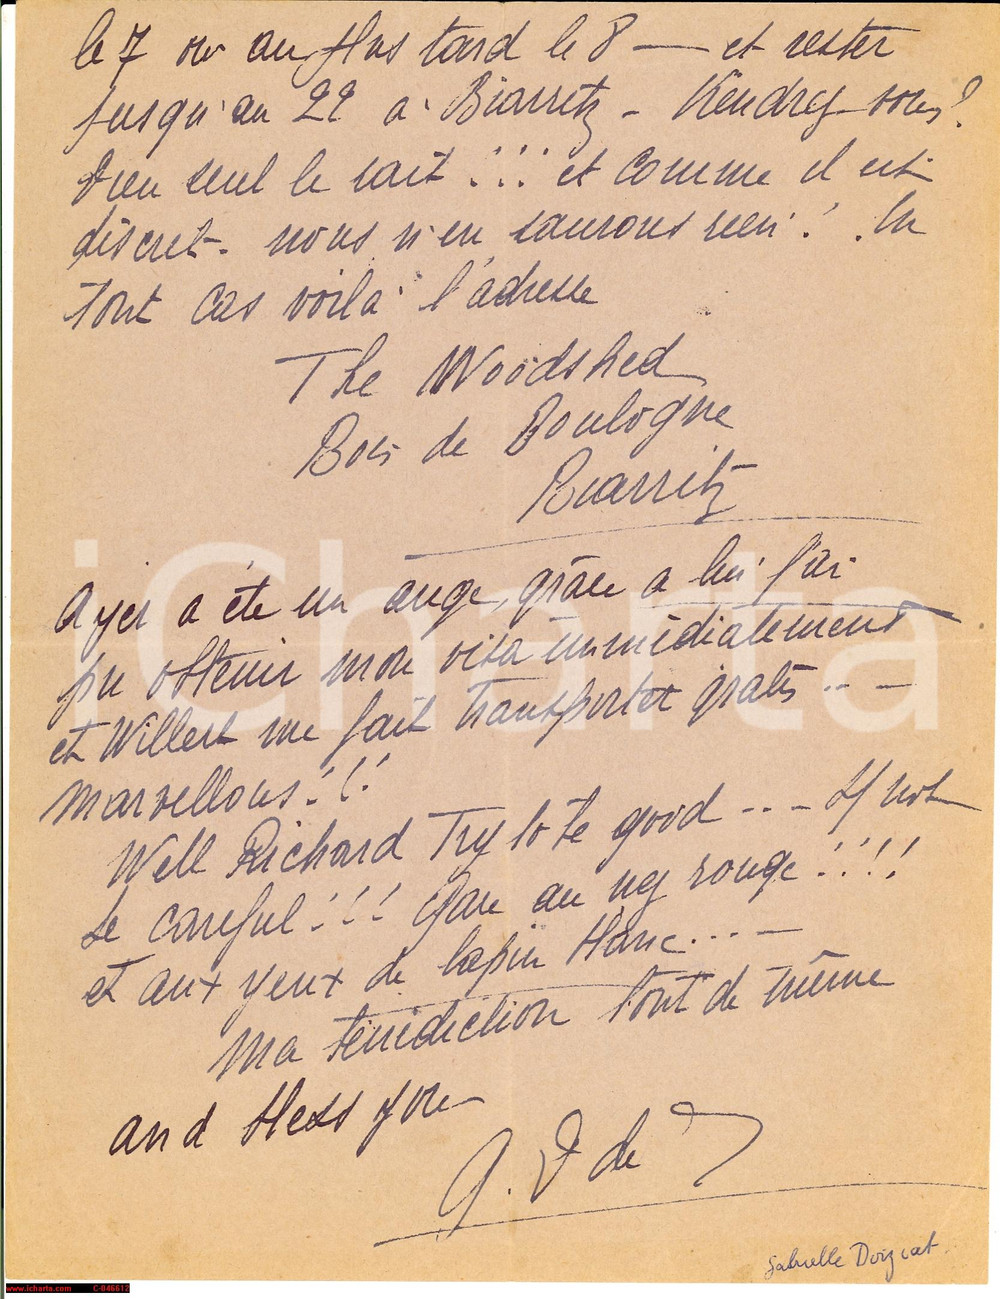 le 7 ou au plus tard le 8 — et rester
jusqu'au 22 à Biarritz - Viendrez-vous?
Dieu seul le sait!!! et comme il est
discret - nous n'en saurons rien! . En
tout cas voilà l'adresse
The Woodshed
Bois de Boulogne
Biarritz
Ayer a été un ange, grâce à lui j'ai
pu obtenir mon visa immédiatement
et Willert me fait transporter gratis -- -
marvellous!!!
Well Richard Try to be good --- If not
be careful!!! Gare au nez rouge!!!!
et aux yeux de lapin blanc... -
Ma bénédiction tout de même
and bless you
G. D de
Gabrielle Dorziat
iCharta
www.icharta.com C-046612